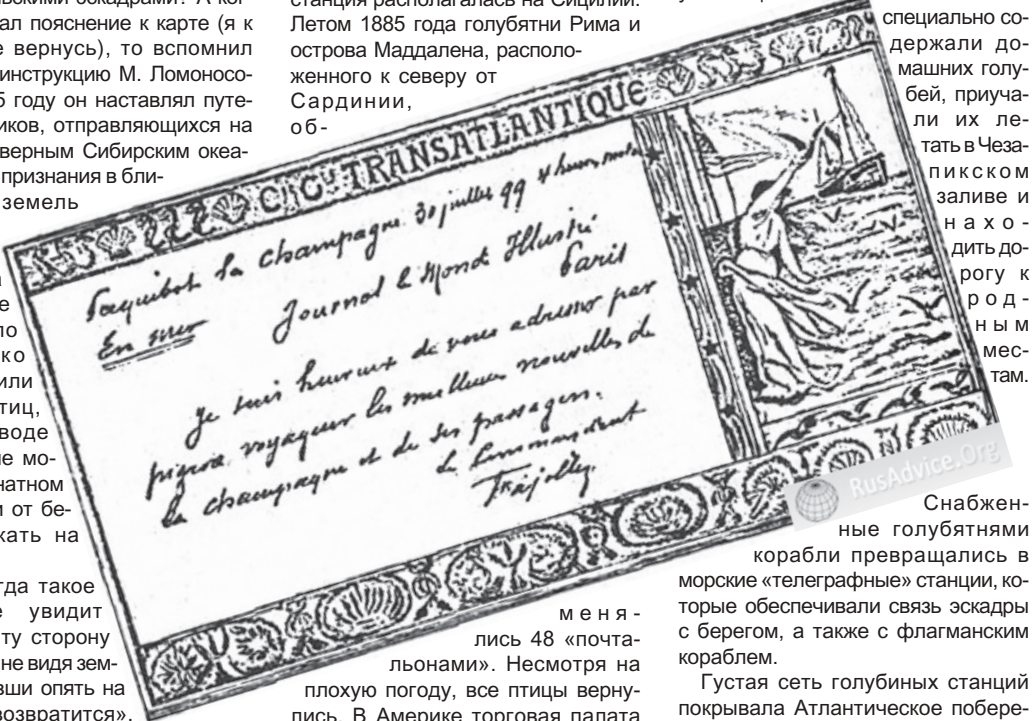 ал пояснение к карте (я к
е вернусь), то вспомнил
инструкцию М. Ломоносо-
5 году он наставлял путе-
иков, отправляющихся на
верным Сибирским океа-
признания в бли-
земель
е
ло
ко
или
тиц,
воде
не мо-
натном
и от бе-
жать на
гда такое
е увидит
ту сторону
не видя зем-
вши опять на
возвратится».
станция располагалась на Сицилии.
Летом 1885 года голубятни Рима и
острова Маддалена, располо-
женного к северу от
Сардинии,
об-
Cie Gle TRANSATLANTIQUE
Paquebot la Champagne 30 juillet 99 4 heures
En mer
Journal le Monde Illustré
Paris
Je suis heureux de vous adresser par
pigeon voyageur les meilleures nouvelles de
la Champagne et de ses passagers.
Le Commandant
меня-
лись 48 «почта-
льонами». Несмотря на
плохую погоду, все птицы верну-
лись. В Америке торговая палата
специально со-
держали до-
машних голу-
бей, приуча-
ли их ле-
тать в Чеза-
пикском
заливе и
нахо-
дить до-
рогу к
род-
ным
мес-
там.
RusAdvice.Org
Снабжен-
ные голубятнями
корабли превращались в
морские «телеграфные» станции, ко-
торые обеспечивали связь эскадры
с берегом, а также с флагманским
кораблем.
Густая сеть голубиных станций
покрывала Атлантическое побере-